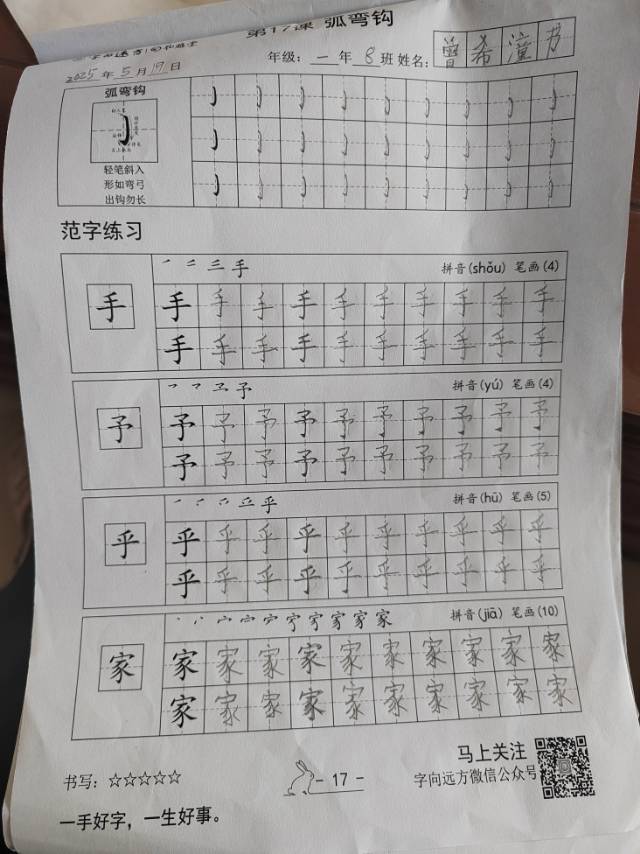 第17课 弧弯钩
年级：一年8班 姓名：曾希潼
2025年5月19日
弧弯钩
轻笔斜入
形如弯弓
出钩勿长
范字练习
拼音(shǒu) 笔画(4)
手
手手手手手手手手手手
手手手手手手手手手手
拼音(yú) 笔画(4)
予
予予予予予予予予予予
予予予予予予予予予予
拼音(hū) 笔画(5)
乎
乎乎乎乎乎乎乎乎乎乎
乎乎乎乎乎乎乎乎乎乎
拼音(jiā) 笔画(10)
家
家家家家家家家家家家
家家家家家家家家家家
书写：☆☆☆☆☆
- 17 -
马上关注
字向远方微信公众号
一手好字，一生好事。